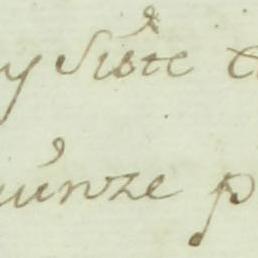 y siete
uinze p